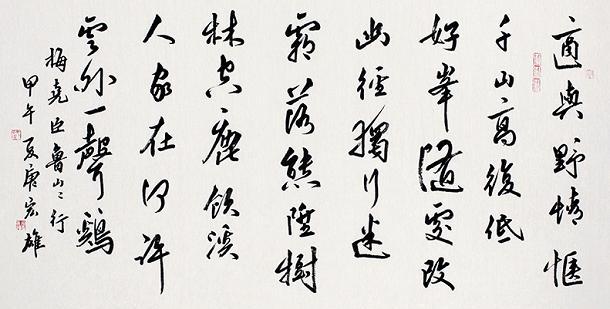 適與野情愜
千山高復低
好峯隨處改
幽徑獨行迷
霜落熊陞樹
林空鹿飲溪
人家在何許
雲外一聲鷄
梅堯臣魯山〻行
甲午夏唐宏雄